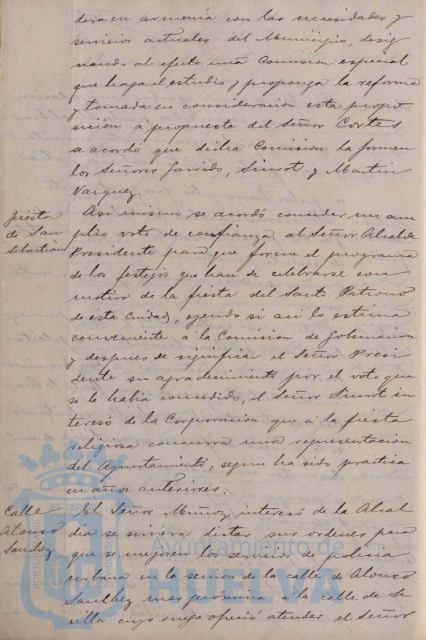 dora en armonía con las necesidades y
servicios actuales del Municipio, desig
nando al efecto una Comision especial
que haga el estudio y proponga la reforma
y tomada en consideracion esta propo
sicion á propuesta del Señor Cortés
se acordó que dicha Comision la formen
los Señores Garrido, Siurot y Martin
Vazquez.
Fiesta
de San
Sebastian
Asi mismo se acordó conceder un am
plio voto de confianza al Señor Alcalde
Presidente para que forme el programa
de los festejos que han de celebrarse con
motivo de la fiesta del Santo Patrono
de esta Ciudad, oyendo si asi lo estima
conveniente á la Comision de Gobernacion
y despues de significar el Señor Presi
dente su agradecimiento por el voto que
se le habia concedido, el Señor Siurot in
teresó de la Corporacion que á la fiesta
religiosa concurra una representacion
del Ayuntamiento, segun ha sido practica
en años anteriores.
Calle
Alonso
Sanchez
El Señor Muñoz interesó de la Alcal
dia se sirviera dictar sus ordenes para
que se mejoren los servicios de policia
urbana en la seccion de la calle de Alonso
Sanchez mas proxima á la calle de Se
villa cuyo ruego ofreció atender el Señor
Ayuntamiento de
HUELVA